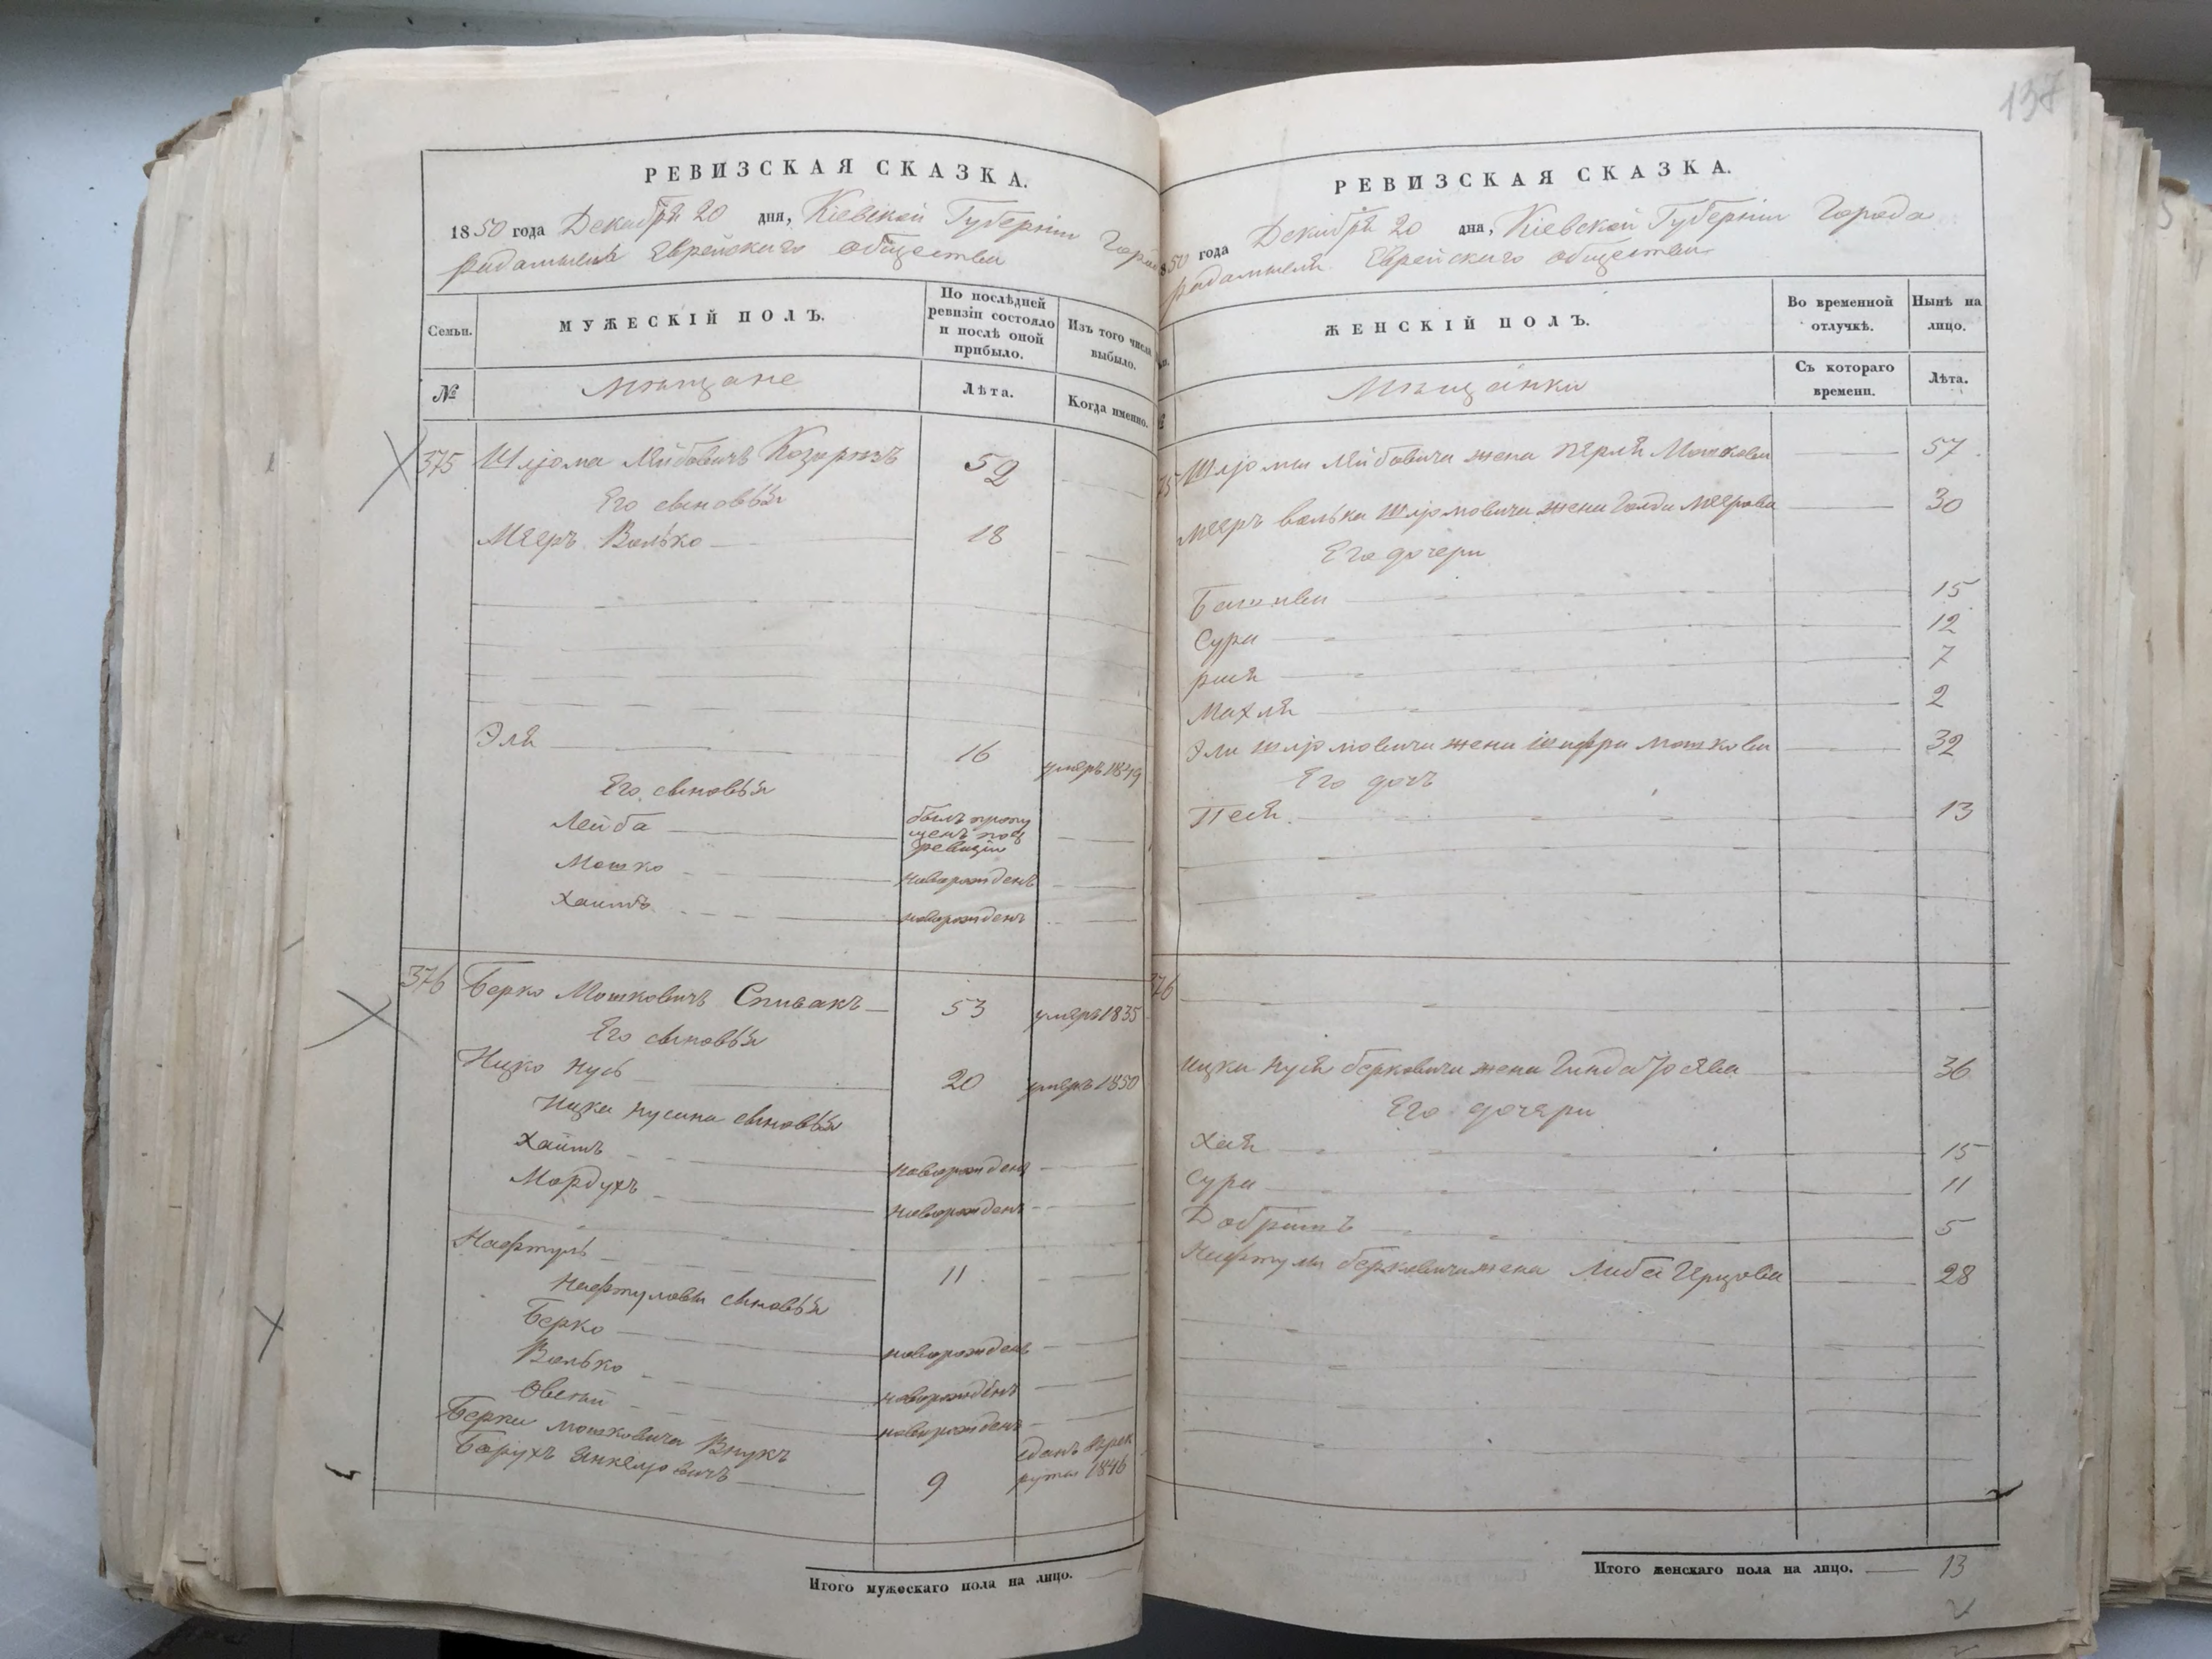 РЕВИЗСКАЯ СКАЗКА.
1850 года Декабря 20 дня, Кіевской Губерніи Горо
радамысля Еврейскаго общества
Семьи.
МУЖЕСКІЙ ПОЛЪ.
По послѣдней ревизіи состояло и послѣ оной прибыло.
Изъ того числа выбыло.
№
Мѣщане
Лѣта.
Когда именно.
375 Шлјома Лейбовичъ 52
Его сыновья
Мееръ Волько 18
Эля 16 умеръ 1849
Его сыновья
Лейба былъ пропущенъ по ревизіи
Мошко новорожденъ
Хаимъ новорожденъ
376 Берко Мошковичъ Спивакъ 53 умеръ 1835
Его сыновья
Ицко Нусь 20 умеръ 1850
Ицка Нусина сыновья
Хаимъ новорожденъ
Мордухъ новорожденъ
Нафтуль 11
Нафтулова сыновья
Берко новорожденъ
Волько новорожденъ
Овсей новорожденъ
Берки Мошковича Внукъ
Борухъ Янкелјовичъ 9 сданъ в рекруты 1846
Итого мужескаго пола на лицо.
137
РЕВИЗСКАЯ СКАЗКА.
50 года Декабря 20 дня, Кіевской Губерніи Города
радамысля Еврейскаго общества
ЖЕНСКІЙ ПОЛЪ.
Во временной отлучкѣ.
Нынѣ на лицо.
Мѣщанки
Съ котораго времени.
Лѣта.
75 Шлјомы Лейбовича жена Перля Мошкова 57
Меера Волька Шлјомовича жена Голда Меерова 30
Его дочери
15
Сура 12
7
Махля 2
Эли Шлјомовича жена Шифра Мошкова 32
Его дочь
Песя 13
376
Ицки Нуся Берковича жена Гинда 36
Его дочери
Хая 15
Сура 11
Добришъ 5
Нафтули Берковича жена Либа Герцова 28
Итого женскаго пола на лицо. 13